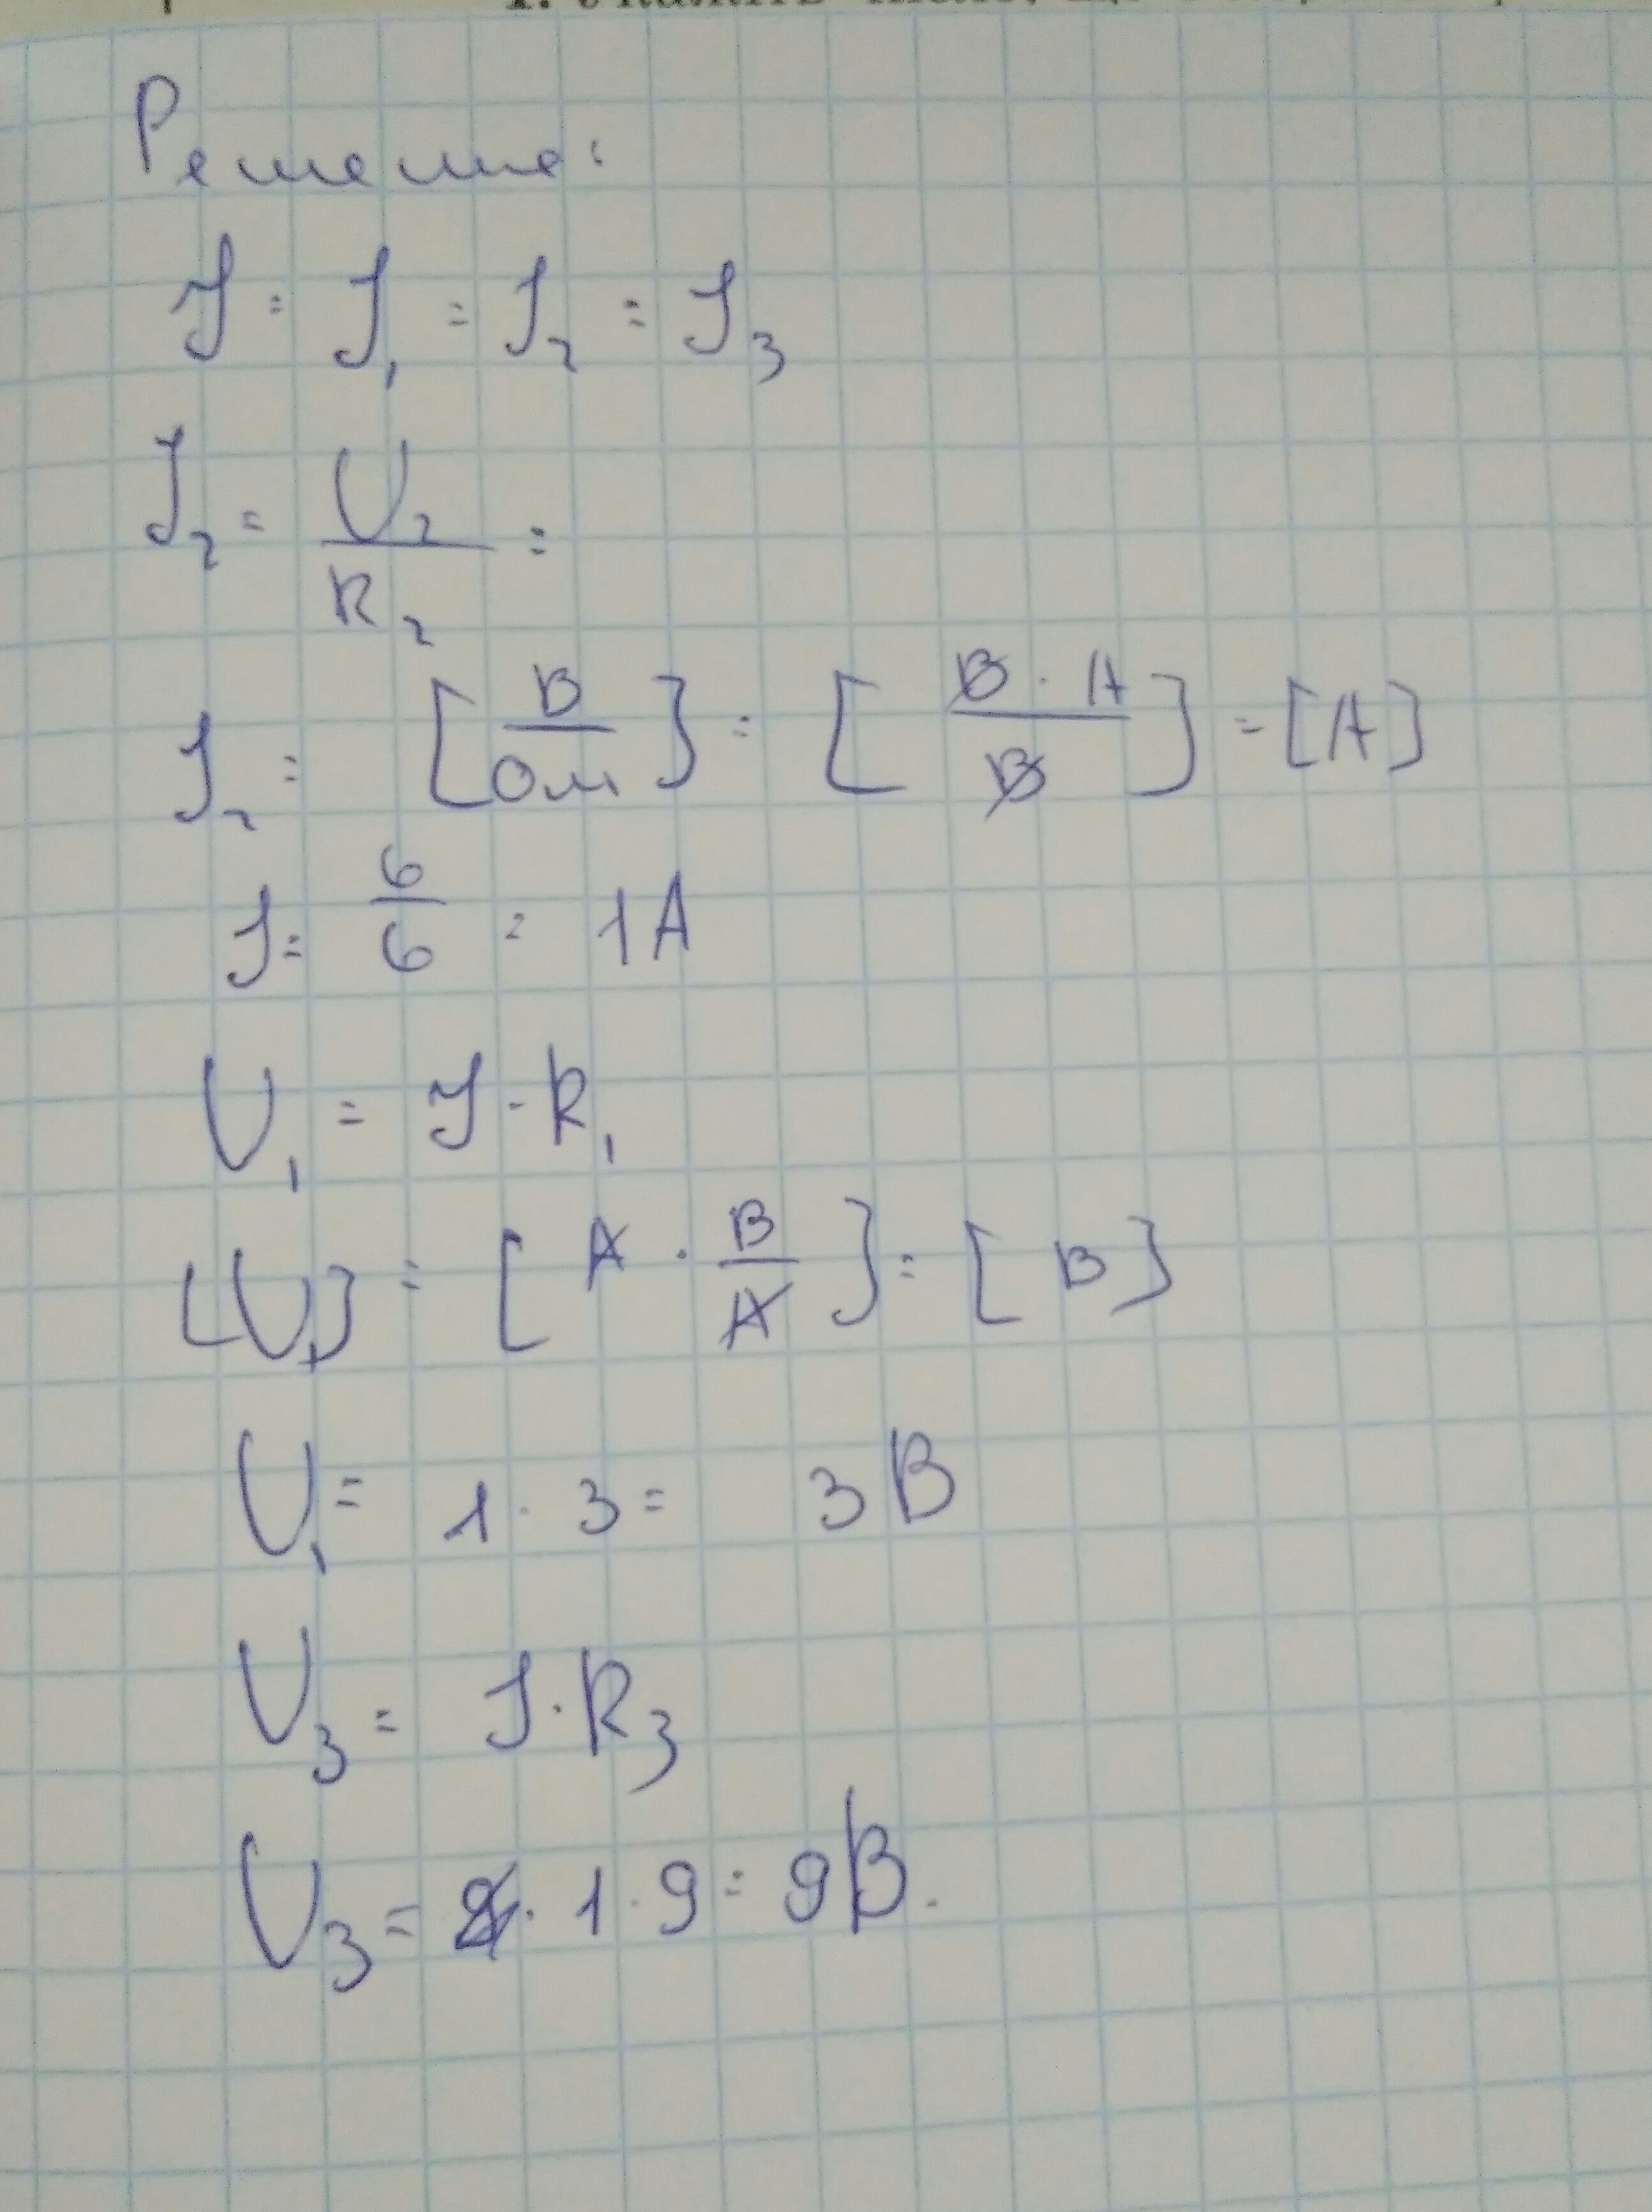 Решение:
I = I₁ = I₂ = I₃
I₂ = U₂/R₂ =
I₂ = [В/Ом] = [В · А/В] = [А]
I = 6/6 = 1А
U₁ = I · R₁
[U₁] = [А · В/А] = [В]
U₁ = 1 · 3 = 3В
U₃ = I · R₃
U₃ = · 1 · 9 = 9В.